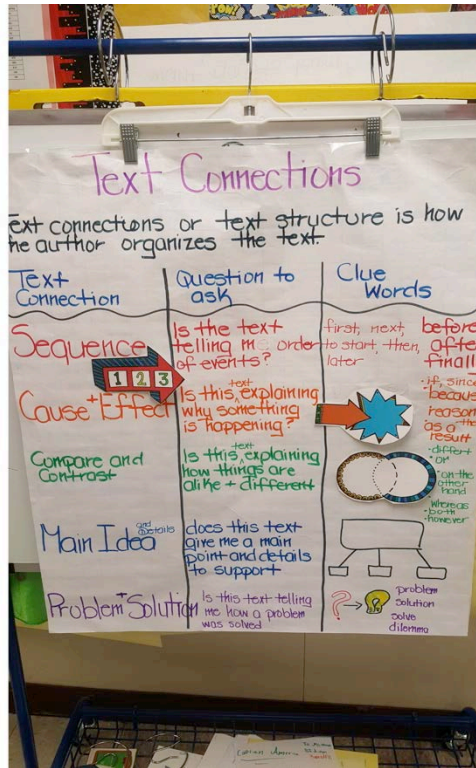 Text Connections
Text connections or text structure is how
the author organizes the text.
Text
Connection
Question to
ask
Clue
Words
Sequence
1 2 3
Is the text
telling me order
of events?
first, next,
to start, then,
later
before
after
finall
Cause + Effect
Is this text explaining
why something
is happening?
if, since
because
reason
the
as a
result
Compare and
Contrast
Is this text explaining
how things are
alike + different
differt
or
on the
other
hand
whereas
both
however
Main Idea and details
does this text
give me a main
point and details
to support
Problem + Solution
Is this text telling
me how a problem
was solved
?
problem
solution
solve
dilemma